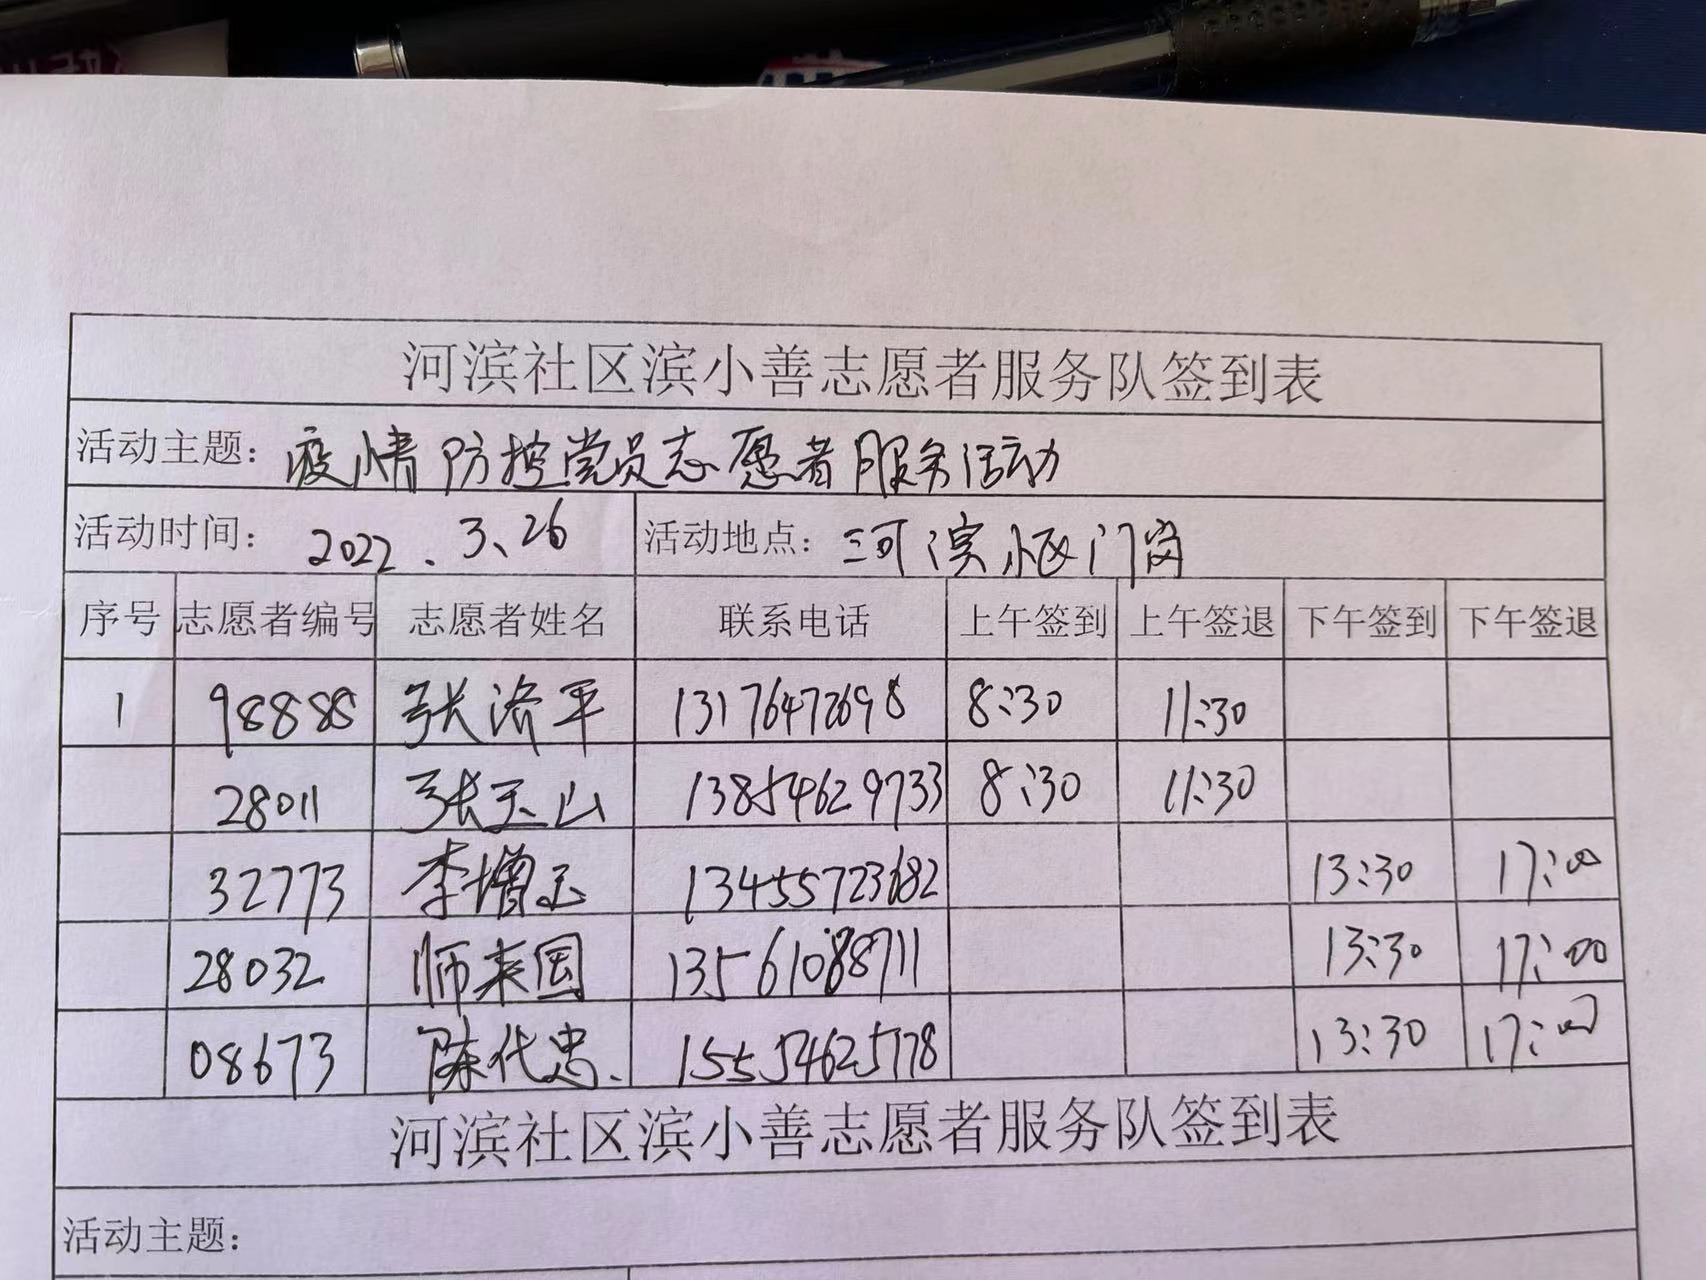 河滨社区滨小善志愿者服务队签到表
活动主题：疫情防控党员志愿者服务活动
活动时间：2022.3.26 活动地点：河滨小区门岗
序号 志愿者编号 志愿者姓名 联系电话 上午签到 上午签退 下午签到 下午签退
1 98888 张济平 13176472698 8:30 11:30
28011 张玉山 13854629733 8:30 11:30
32773 李增玉 13455723682 13:30 17:00
28032 师来国 13561088711 13:30 17:00
08673 陈代忠 15554625178 13:30 17:00
河滨社区滨小善志愿者服务队签到表
活动主题：